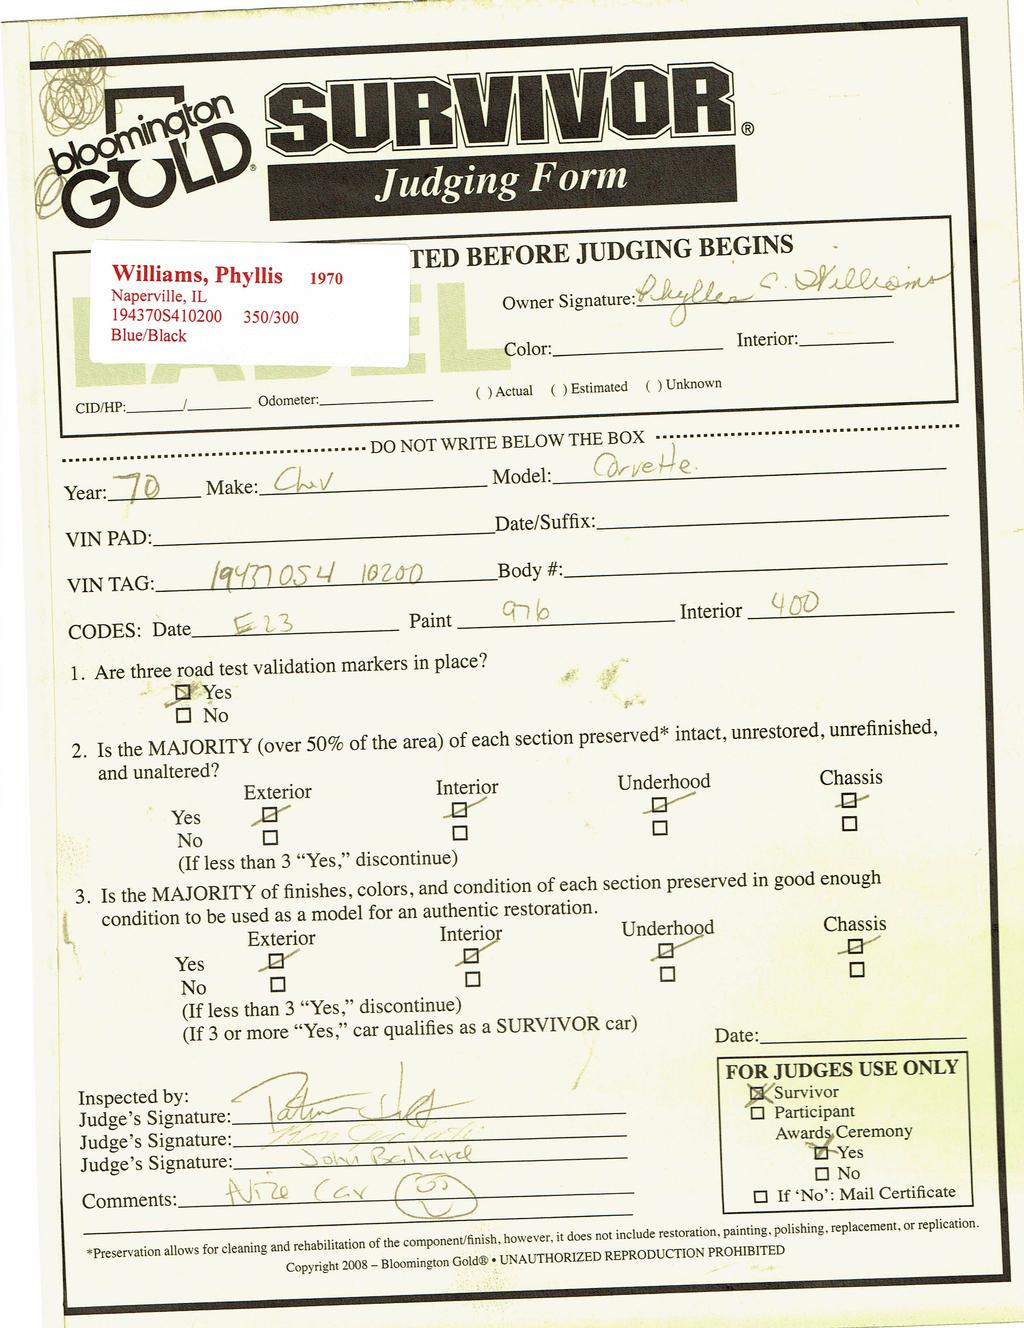 bloomington
GOLD®
SURVIVOR®
Judging Form
TED BEFORE JUDGING BEGINS
Williams, Phyllis 1970
Naperville, IL
194370S410200 350/300
Blue/Black
Owner Signature: Phyllis C. Williams
Color: Interior:
CID/HP: / Odometer: ( ) Actual ( ) Estimated ( ) Unknown
DO NOT WRITE BELOW THE BOX
Year: 70 Make: Chev Model: Corvette.
VIN PAD: Date/Suffix:
VIN TAG: 194370S4 10200 Body #:
CODES: Date E23 Paint 976 Interior 400
1. Are three road test validation markers in place?
Yes
No
2. Is the MAJORITY (over 50% of the area) of each section preserved* intact, unrestored, unrefinished,
and unaltered?
Exterior Interior Underhood Chassis
Yes
No
(If less than 3 “Yes,” discontinue)
3. Is the MAJORITY of finishes, colors, and condition of each section preserved in good enough
condition to be used as a model for an authentic restoration.
Exterior Interior Underhood Chassis
Yes
No
(If less than 3 “Yes,” discontinue)
(If 3 or more “Yes,” car qualifies as a SURVIVOR car)
Date:
Inspected by:
Judge's Signature:
Judge's Signature:
Judge's Signature: John Ballard
Comments: Nize Car
FOR JUDGES USE ONLY
Survivor
Participant
Awards Ceremony
Yes
No
If 'No': Mail Certificate
*Preservation allows for cleaning and rehabilitation of the component/finish, however, it does not include restoration, painting, polishing, replacement, or replication.
Copyright 2008 – Bloomington Gold® • UNAUTHORIZED REPRODUCTION PROHIBITED